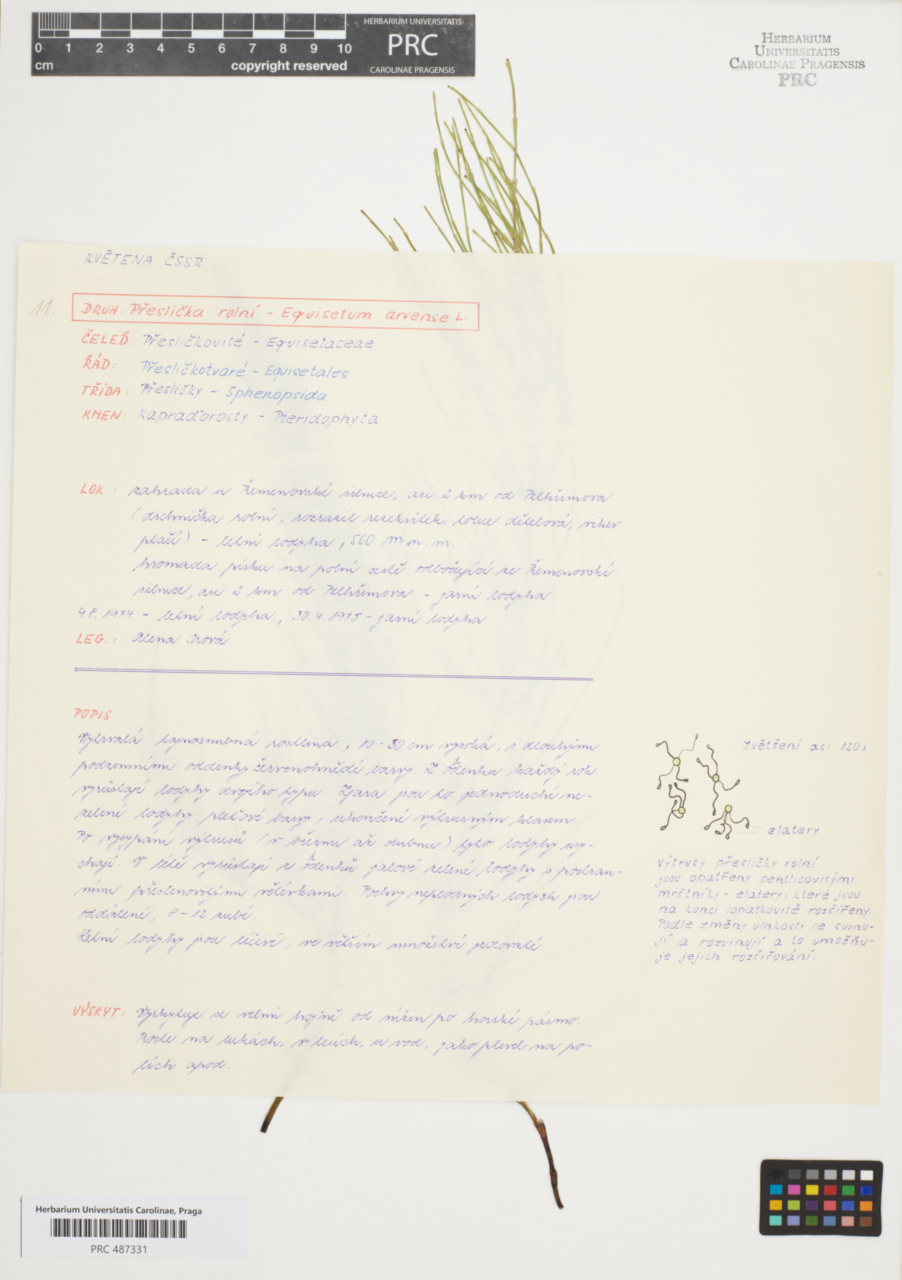 0 1 2 3 4 5 6 7 8 9 10
cm
copyright reserved
HERBARIUM UNIVERSITATIS
PRC
CAROLINAE PRAGENSIS
HERBARIUM
UNIVERSITATIS
CAROLINAE PRAGENSIS
PRC
KVĚTENA ČSSR
11.
DRUH: Přeslička rolní - Equisetum arvense L.
ČELEĎ: Přesličkovité - Equisetaceae
ŘÁD: Přesličkotvaré - Equisetales
TŘÍDA: Přesličky - Sphenopsida
KMEN: Kapraďorosty - Pteridophyta
LOK.: zahrada u Řemenovské silnice, asi 2 km od Pelhřimova
rolní, rozrazil rezekvítek, dětelová,
ptačí) - letní lodyha, 560 m n. m.
hromada písku na polní cestě odbočující ze Řemenovské
silnice, asi 2 km od Pelhřimova - jarní lodyha
1974 - letní lodyha, 30.4.1975 - jarní lodyha
LEG.: Alena
POPIS
Vytrvalá výtrusná rostlina, 10-30 cm vysoká, s dlouhými
podzemními oddenky červenohnědé barvy. Z oddenku každý rok
vyrůstají lodyhy dvojího typu. Zjara jsou to jednoduché ne-
zelené lodyhy pleťové barvy, zakončené výtrusným klasem.
Po vysypání výtrusů (v březnu až dubnu) tyto lodyhy usy-
chají. V létě vyrůstají z oddenků jalové zelené lodyhy s postran-
ními přeslenovitými větévkami. Pochvy neplodných lodyh jsou
oddálené, 8-12 zubé.
Letní lodyhy jsou léčivé, ve větším množství jedovaté
Zvětšení asi 120x
elatery
výtrusy přesličky rolní
jsou opatřeny pentlicovitými
mrštníky - elatery, které jsou
na konci lopatkovitě rozšířeny.
Podle změny vlhkosti se svinu-
jí a rozvinují a to umožňu-
je jejich rozšiřování.
VÝSKYT: Vyskytuje se velmi hojně od nížin po horské pásmo.
Roste na lukách, v lesích, u vod, jako plevel na po-
lích apod.
Herbarium Universitatis Carolinae, Praga
PRC 487331